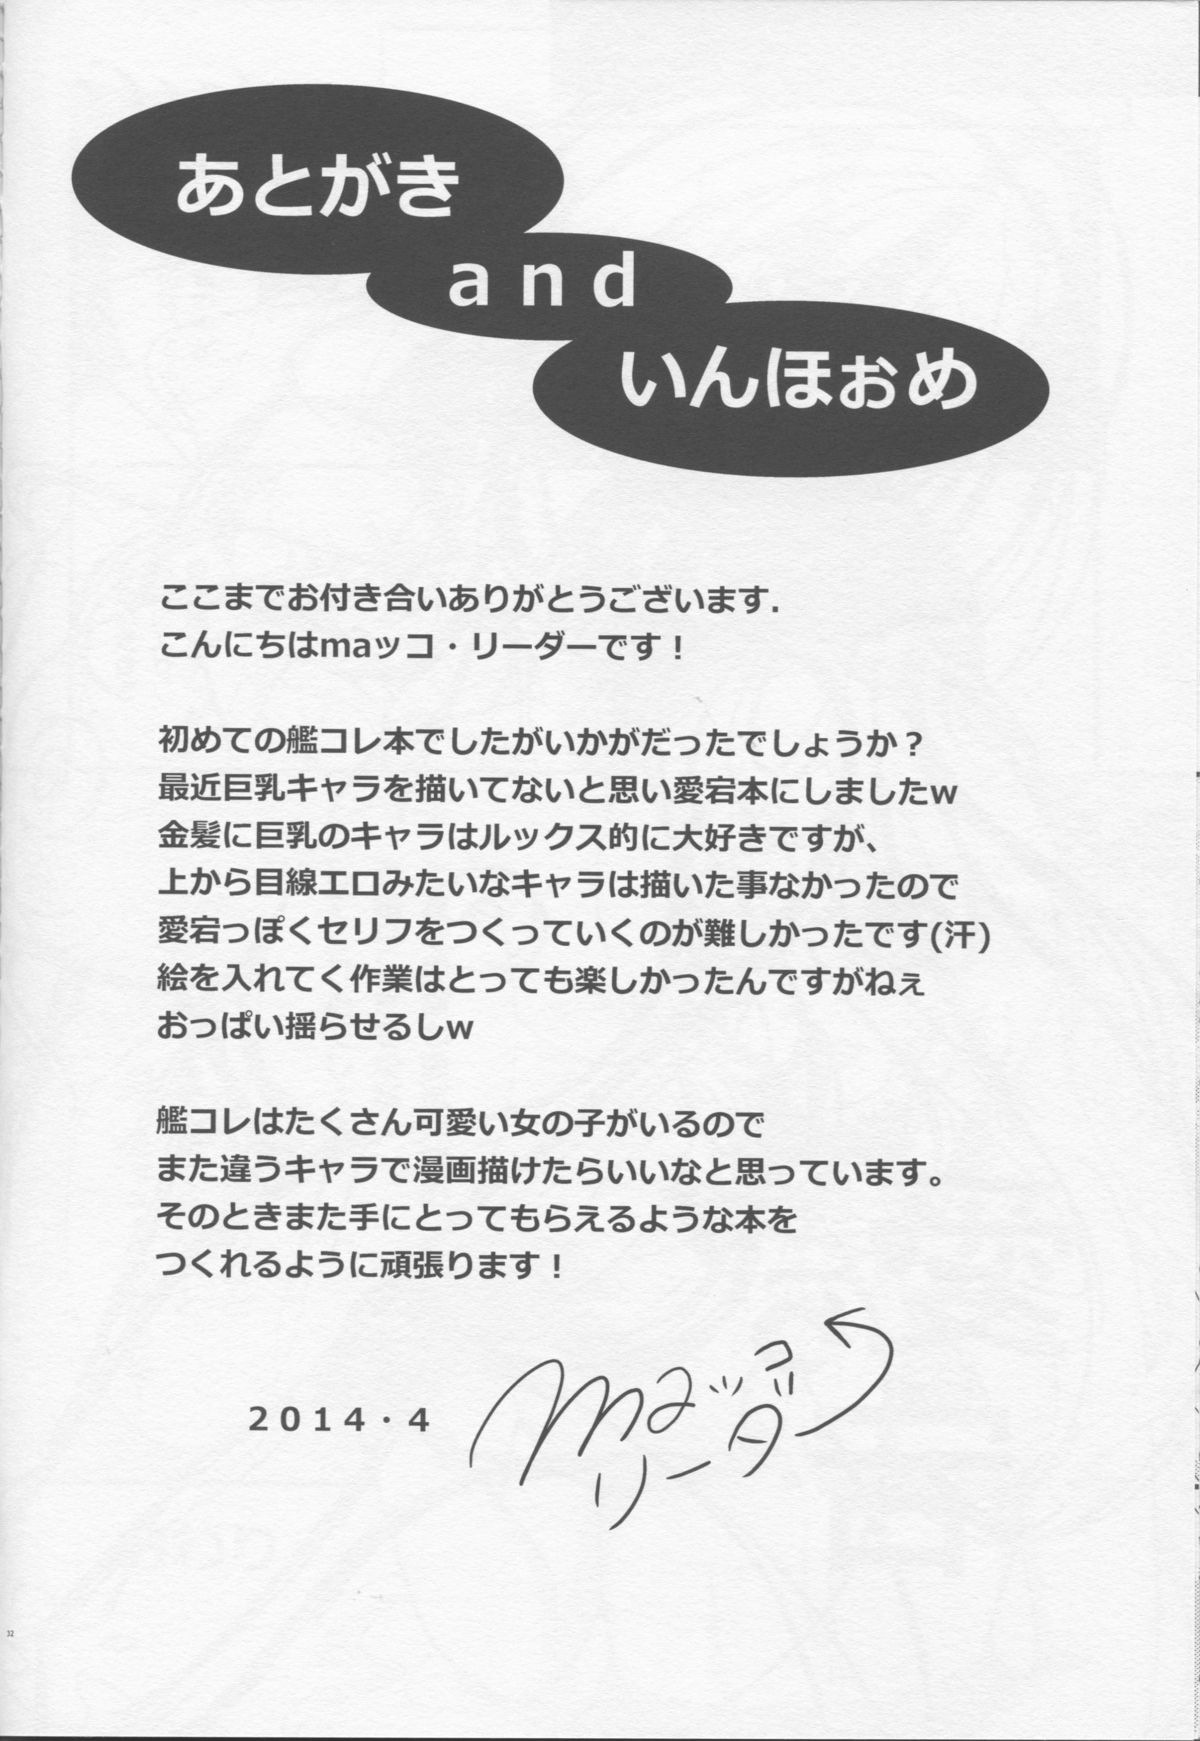 あとがき
and
いんほぉめ
ここまでお付き合いありがとうございます.
こんにちはmaッコ・リーダーです！
初めての艦コレ本でしたがいかがだったでしょうか？
最近巨乳キャラを描いてないと思い愛宕本にしましたw
金髪に巨乳のキャラはルックス的に大好きですが、
上から目線エロみたいなキャラは描いた事なかったので
愛宕っぽくセリフをつくっていくのが難しかったです(汗)
絵を入れてく作業はとっても楽しかったんですがねぇ
おっぱい揺らせるしw
艦コレはたくさん可愛い女の子がいるので
また違うキャラで漫画描けたらいいなと思っています。
そのときまた手にとってもらえるような本を
つくれるように頑張ります！
2014・4
maッコ
リーダー
32